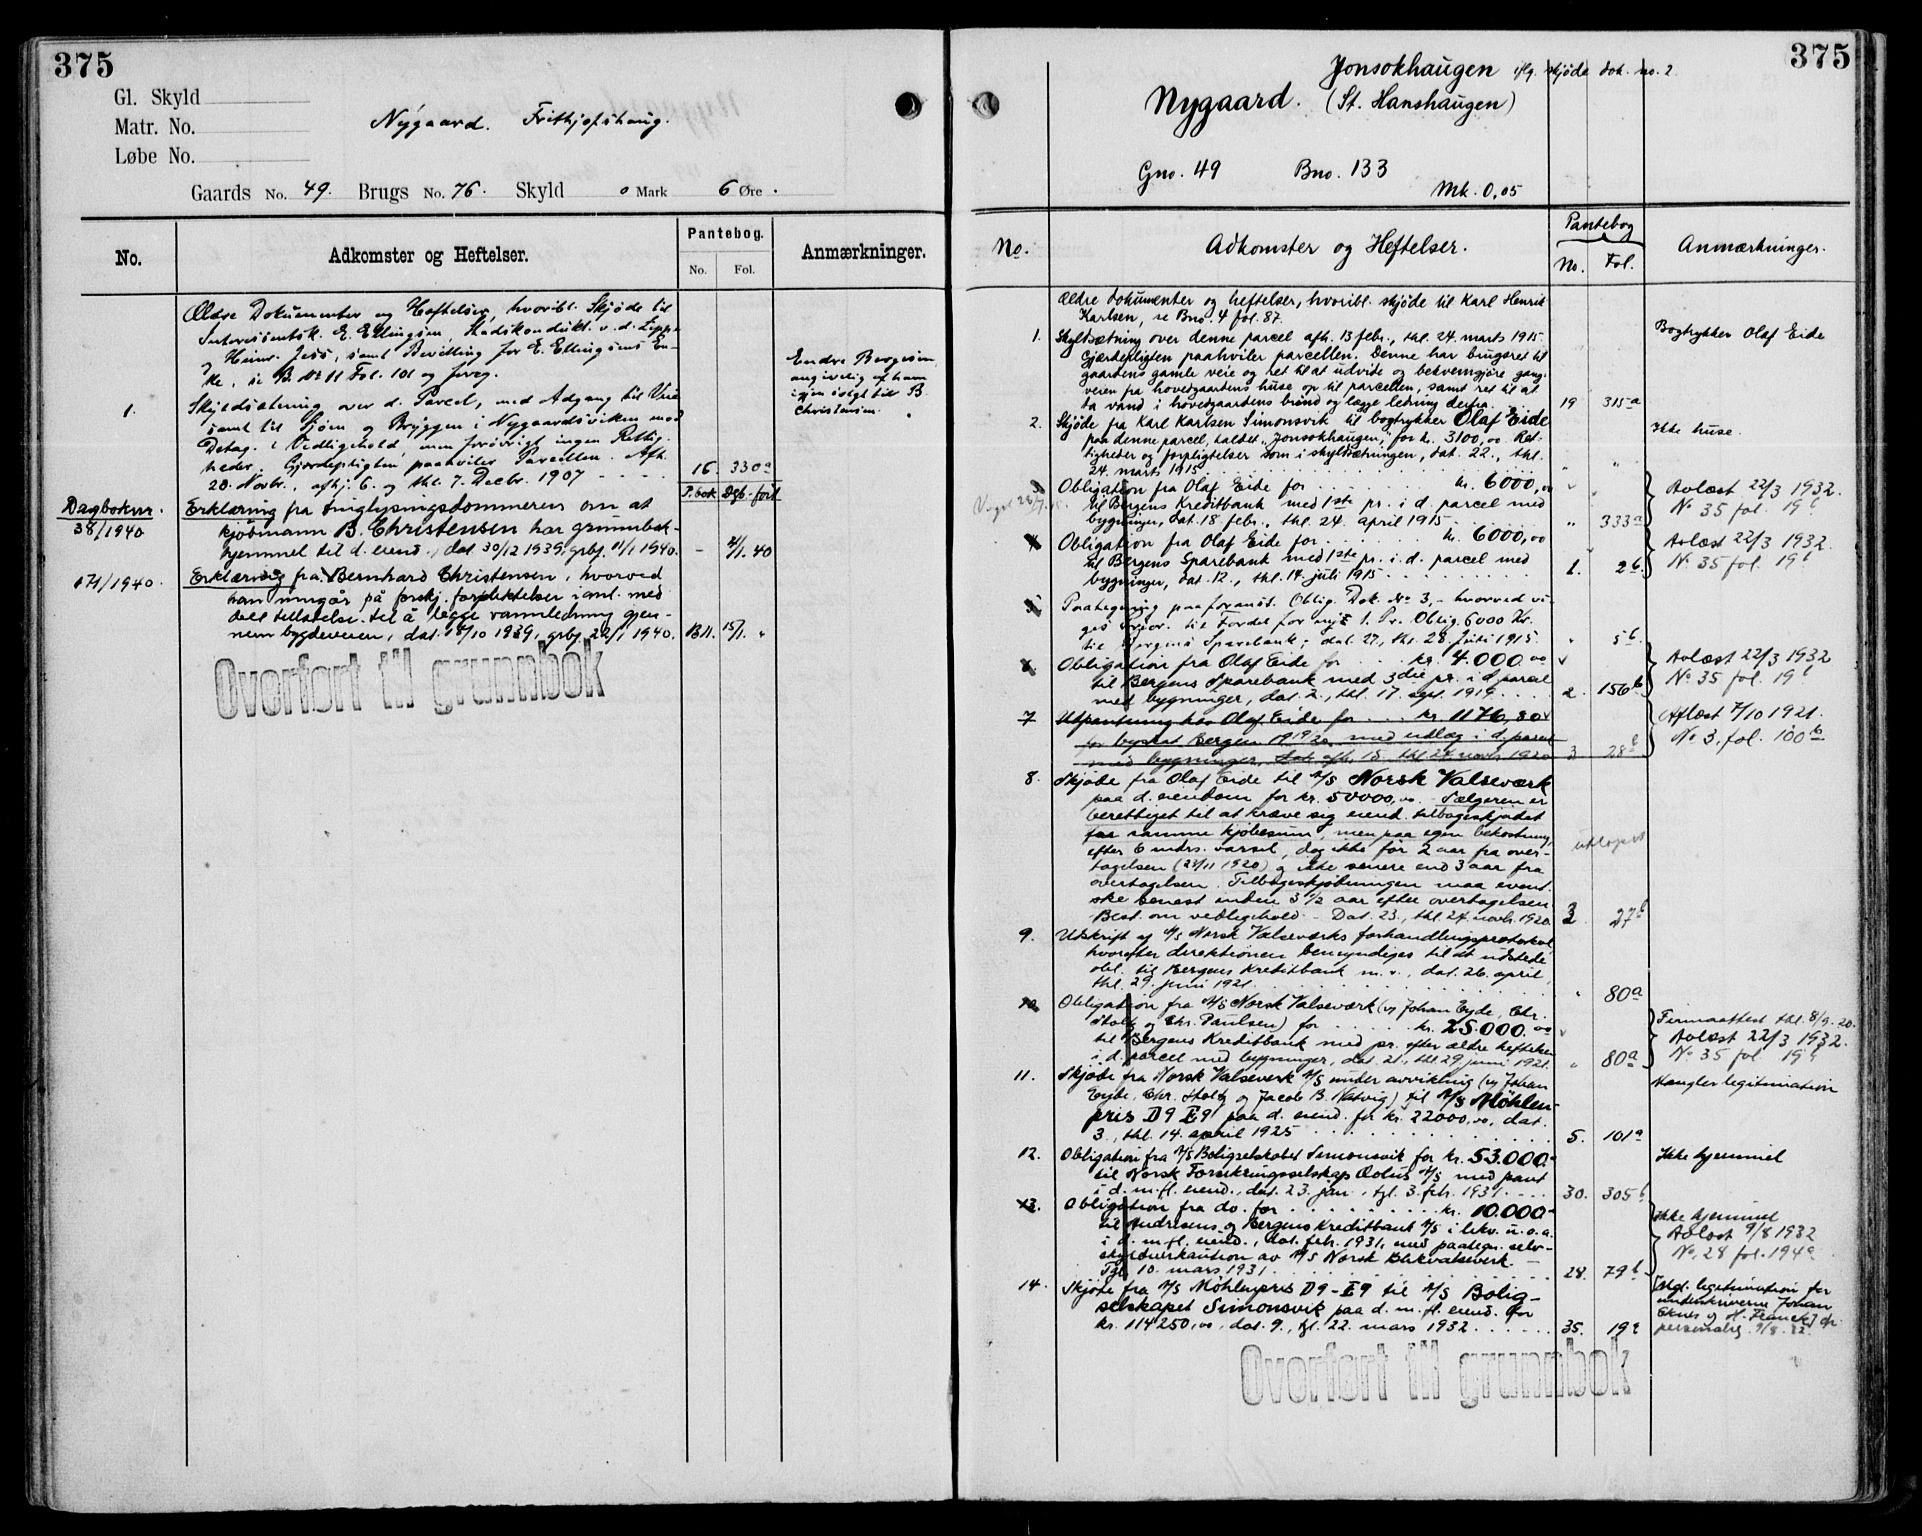 375
Gl. Skyld
Matr. No.
Løbe No.
Nygaard. Frithjofshaug.
Gaards No. 49. Brugs No. 76. Skyld 0 Mark 6 Øre.
No.
Adkomster og Heftelser.
Pantebog.
No. Fol.
Anmærkninger.
Ældre Dokumenter og Heftelser, hvoribl. Skjøde til
E. Ellingsen, Stadskondukt. v. d. Lippe
og Henr. Jess, samt Bevilling for E. Ellingsens En-
ke, se B. No 11 Fol. 101 og foreg.
1. Skyldsætning over d. Parcel, med Adgang til Vei
samt til Sjøen og Bryggen i Nygaardsviken mod
Deltag. i Vedligehold, men forøvrigt ingen Rettig-
heder. Gjerdepligten paahviler Parcellen. Afh.
20. Novbr., afhj. 6. og thl. 7. Decbr. 1907 - - - - 16. 330a
Endre Borgesen
angivelig af ham
igjen solgt til B.
Christensen.
P.bok Dgb-ført
Dagboknr.
38/1940
Erklæring fra tinglysingsdommeren om at
kjøbmann B. Christensen har grunnbok-
hjemmel til d. eiend., dat. 30/12 1939, grbj. 11/1 1940. - 2/1. 40
171/1940.
Erklæring fra Bernhard Christensen, hvorved
han inngår på forskj. forpliktelser i anl. med
del tillatelse til å legge vannledning gjen-
nem bygdeveien, dat. 18/10 1939, grbj. 22/1 1940. B11. 15/1. "
Overført til grunnbok
375
Jonsokhaugen iflg. skjøde dok. no. 2.
Nygaard. (St. Hanshaugen)
Gno. 49 Bno. 133
Mk. 0,05
No.
Adkomster og Heftelser.
Pantebog
No. Fol.
Anmærkninger.
Ældre dokumenter og heftelser, hvoribl. skjøde til Karl Henrik
Karlsen, se Bno. 4 fol. 87.
Bogtrykker Olaf Eide
1. Skyldsætning over denne parcel afh. 13 febr., thl. 24. marts 1915.
Gjærdepligten paahviler parcellen. Denne har brugsret til
gaardens gamle veie og ret til at udvide og bekvemgjøre gang-
veien fra hovedgaardens huse op til parcellen, samt ret til at
ta vand i hovedgaardens brønd og lægge ledning derfra. 19 315a
2. Skjøde fra Karl Karlsen Simonsvik til bogtrykker Olaf Eide
paa denne parcel, kaldet "Jonsokhaugen," for kr. 3100,00. Ret-
tigheder og forpligtelser som i skyldsætningen, dat. 22., thl.
24. marts 1915 . . . . " "
Ikke huse.
3 Obligation fra Olaf Eide for . . . . kr. 6000,00
til Bergens Kreditbank med 1ste pr. i d. parcel med
bygninger, dat. 18. febr., thl. 24. april 1915. " 333a
Avlæst 22/3 1932.
No 35 fol. 19b
4 Obligation fra Olaf Eide for . . . . kr. 6000,00
til Bergens Sparebank med 1ste pr. i d. parcel med
bygninger, dat. 12., thl. 14. juli 1915 . . . . 1. 2b.
Avlæst 22/3 1932.
No 35 fol. 19b
5 Paategning paa foranst. Oblig. Dok. No 3, - hvorved vi-
ges Prior. til Fordel for nye 1. Pr. Oblig. 6000 Kr.
til Bergens Sparebank; dat. 27., thl. 28. Juli 1915. " 5b.
6. Obligation fra Olaf Eide for . . . kr. 4.000.00
til Bergens Sparebank med 3die pr. i d. parcel
med bygninger, dat. 2., thl. 17. sept. 1919. . . . 2. 156b
Avlæst 22/3 1932
No 35 fol. 19b
7 Utpantning hos Olaf Eide for . . . kr. 1176,80
for byskat Bergen 1919/20 med utlæg i d. parcel
med bygninger, afh. 15. thl. 24. novbr. 1920 3 28b
Aflæst 7/10 1921.
No 3. fol. 100b
8. Skjøde fra Olaf Eide til A/S Norsk Valseværk
paa d. eiendom for kr. 50000,00. Sælgeren er
berettiget til at kræve sig eiend. tilbageskjødet
for samme kjøbesum, men paa egen bekostning,
efter 6 mdrs. varsel, dog ikke før 2 aar fra over-
tagelsen (24/11 1920) og ikke senere end 3 aar fra
overtagelsen. Tilbageskjødningen maa event.
ske senest inden 3 1/2 aar efter overtagelsen.
Best. om vedligehold. - Dat. 23., thl. 24. novbr. 1920. 3 27b
utløpet
9. Utskrift af A/S Norsk Valseværks forhandlingsprotokol
hvorefter direktionen bemyndiges til at utstede
obl. til Bergens Kreditbank m. v., dat. 26. april,
thl. 29. juni 1921 . . . . " 80a
10. Obligation fra A/S Norsk Valseværk (v/ Johan Eyde, Chr.
Stoltz og Chr. Paulsen) for . . . . kr. 25.000.00
til Bergens Kreditbank med pr. efter ældre heftelser
i d. parcel med bygninger, dat. 21., thl. 29 juni 1921. " 80a
Firmaattest thl. 8/9-20.
Avlæst 22/3 1932.
No 35 fol. 19b
11. Skjøde fra Norsk Valseverk A/S under avvikling (v/ Johan
Eyde, Chr. Stoltz og Jacob B. Natvig) til A/S Møhlen-
pris D9 E9 paa d. eiend. for kr. 22000,00, dat.
3., thl. 14. april 1925 . . . . 5. 101a
Mangler legitimation
12. Obligation fra A/S Boligselskabet Simonsvik for kr. 53.000.-
til Norsk Forsikringsselskap Æolus A/S med pant
i d. m. fl. eiend., dat. 23. jan., tgl. 3. febr. 1931. . . . 30. 305b
Ikke hjemmel
13. Obligation fra do. for . . . . kr. 10.000-
til Andresens og Bergens Kreditbank A/S i likv. u. o. a.
i d. m. fl. eiend., dat. febr. 1931, med paategn. selv-
skyldnerkaution av A/S Norsk Blikvalseverk. -
Tgl. 10. mars 1931 . . . . 28. 79b
Ikke hjemmel
Avlæst 9/8 1932
No. 28 fol. 194a
14. Skjøte fra A/S Møhlenpris D9-E9 til A/S Bolig-
selskapet Simonsvik paa d. m. fl. eiend. for
kr. 114250,00, dat. 9., tgl. 22. mars 1932 . . . . 35. 19b
legitimation for
underskriverne Johan
Eknes og H. Franck
9/8. 32.
Overført til grunnbok